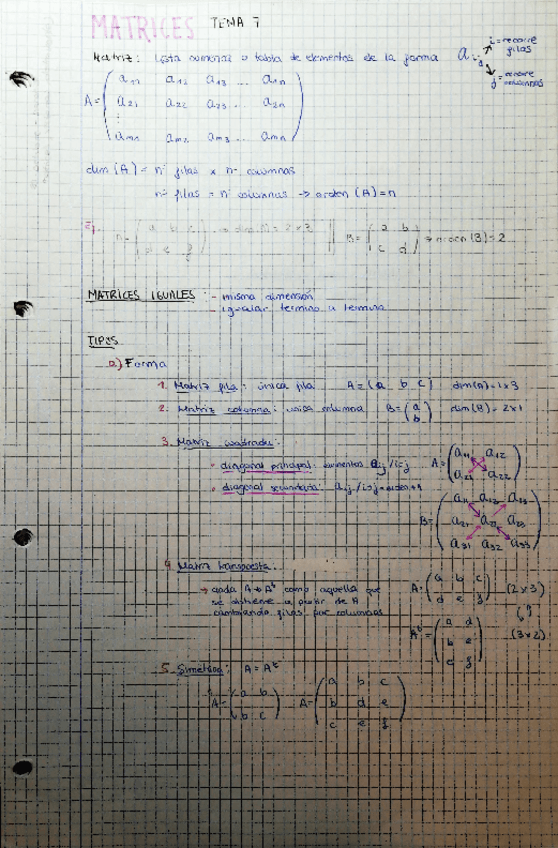 MATRICES TEMA 7
Matriz: lista números o tabla de elementos de la forma a i j
i = recorre filas
j = recorre columnas
A = ( a11 a12 a13 ... a1n
a21 a22 a23 ... a2n
⋮
am1 am2 am3 ... amn )
dim (A) = nº filas x nº columnas
nº filas = nº columnas → orden (A) = n
Ej. A = ( a b c / d e f ) → dim(A) = 2x3 || B = ( a b / c d ) → orden (B) = 2
MATRICES IGUALES: - misma dimensión
- igualar término a término
TIPOS
a) Forma
1. Matriz fila: única fila A = (a b c) dim(A) = 1x3
2. Matriz columna: única columna B = ( a / b ) dim(B) = 2x1
3. Matriz cuadrada:
• diagonal principal: elementos aij / i=j A = ( a11 a12 / a21 a22 )
• diagonal secundaria: aij / i+j = orden+1
B = ( a11 a12 a13
a21 a22 a23
a31 a32 a33 )
4. Matriz transpuesta.
→ dada A → Aᵗ como aquella que
se obtiene a partir de A
cambiando filas por columnas
A = ( a b c / d e f ) (2x3)
Aᵗ = ( a d / b e / c f ) (3x2)
5. Simétrica: A = Aᵗ
A = ( a b / b c ) A = ( a b c / b d e / c e f )